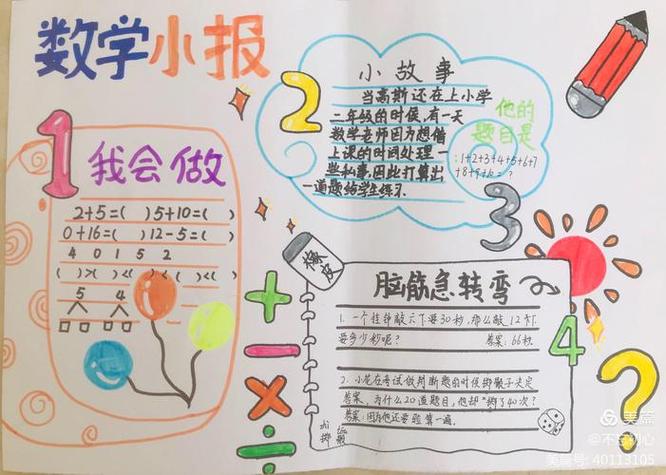 数学小报
1
我会做
2+5=( ) 5+10=( )
0+16=( ) 12-5=( )
4 0 1 5 2
( )>( )<( ) ( )<( )
5 4
2
小故事
当高斯还在上小学
二年级的时候,有一天
数学老师因为想借
上课的时间处理一
些私事,因此打算出
一道题给学生练习.
他的
题目是
:1+2+3+4+5+6+7
+8+9+10=?
3
橡皮
脑筋急转弯
1.一个挂钟敲六下要30秒,那么敲12下
要多少秒呢? 答案:66秒.
2.小龙在考试做判断题的时候掷骰子决定
答案,为什么20道题目,他却"掷了40次?
答案:因为他还要验算一遍.
zhì tóu
掷 骰
4
+
-
×
÷
?
美篇
@不忘初心
美篇号:40113105